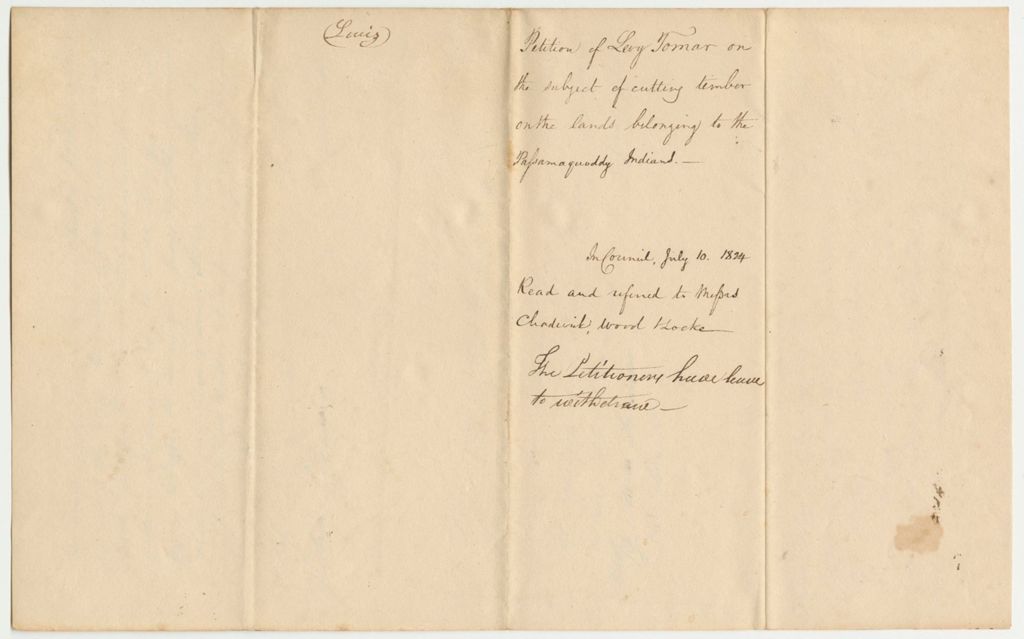 (Lewis)
Petition of Levy Tomar on
the subject of cutting tember
on the lands belonging to the
Passamaquoddy Indians. —
In Council, July 10. 1824
Read and referred to Messrs
Chadwick, Wood & Locke —
The Petitioners have leave
to withdraw —